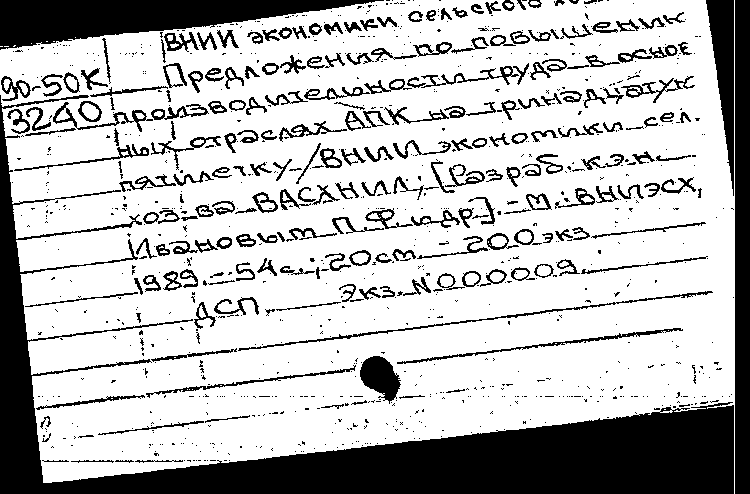 ВНИИ экономики сельского хоз
90-50К Предложения по повышению
3240 производительности труда в основ
ных отраслях АПК на тринадцатую
пятилетку / ВНИИ экономики сел.
хоз-ва ВАСХНИЛ; [Разраб. к.э.н.
Ивановым П.Ф. и др]. - М.: ВНИЭСХ,
1989. - 54с.; 20см. - 200 экз.
ДСП. Экз. N000009.